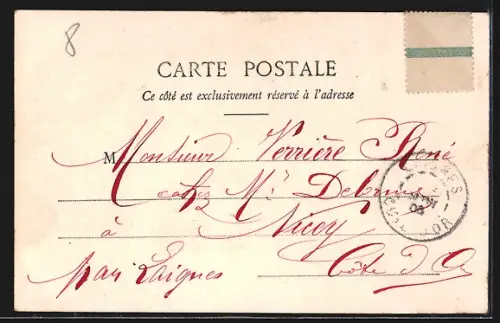 8
CARTE POSTALE
Ce côté est exclusivement réservé à l'adresse
Monsieur Verrière René
chez Mr Debrus
à Nicey
par Laignes
Côte d'Or